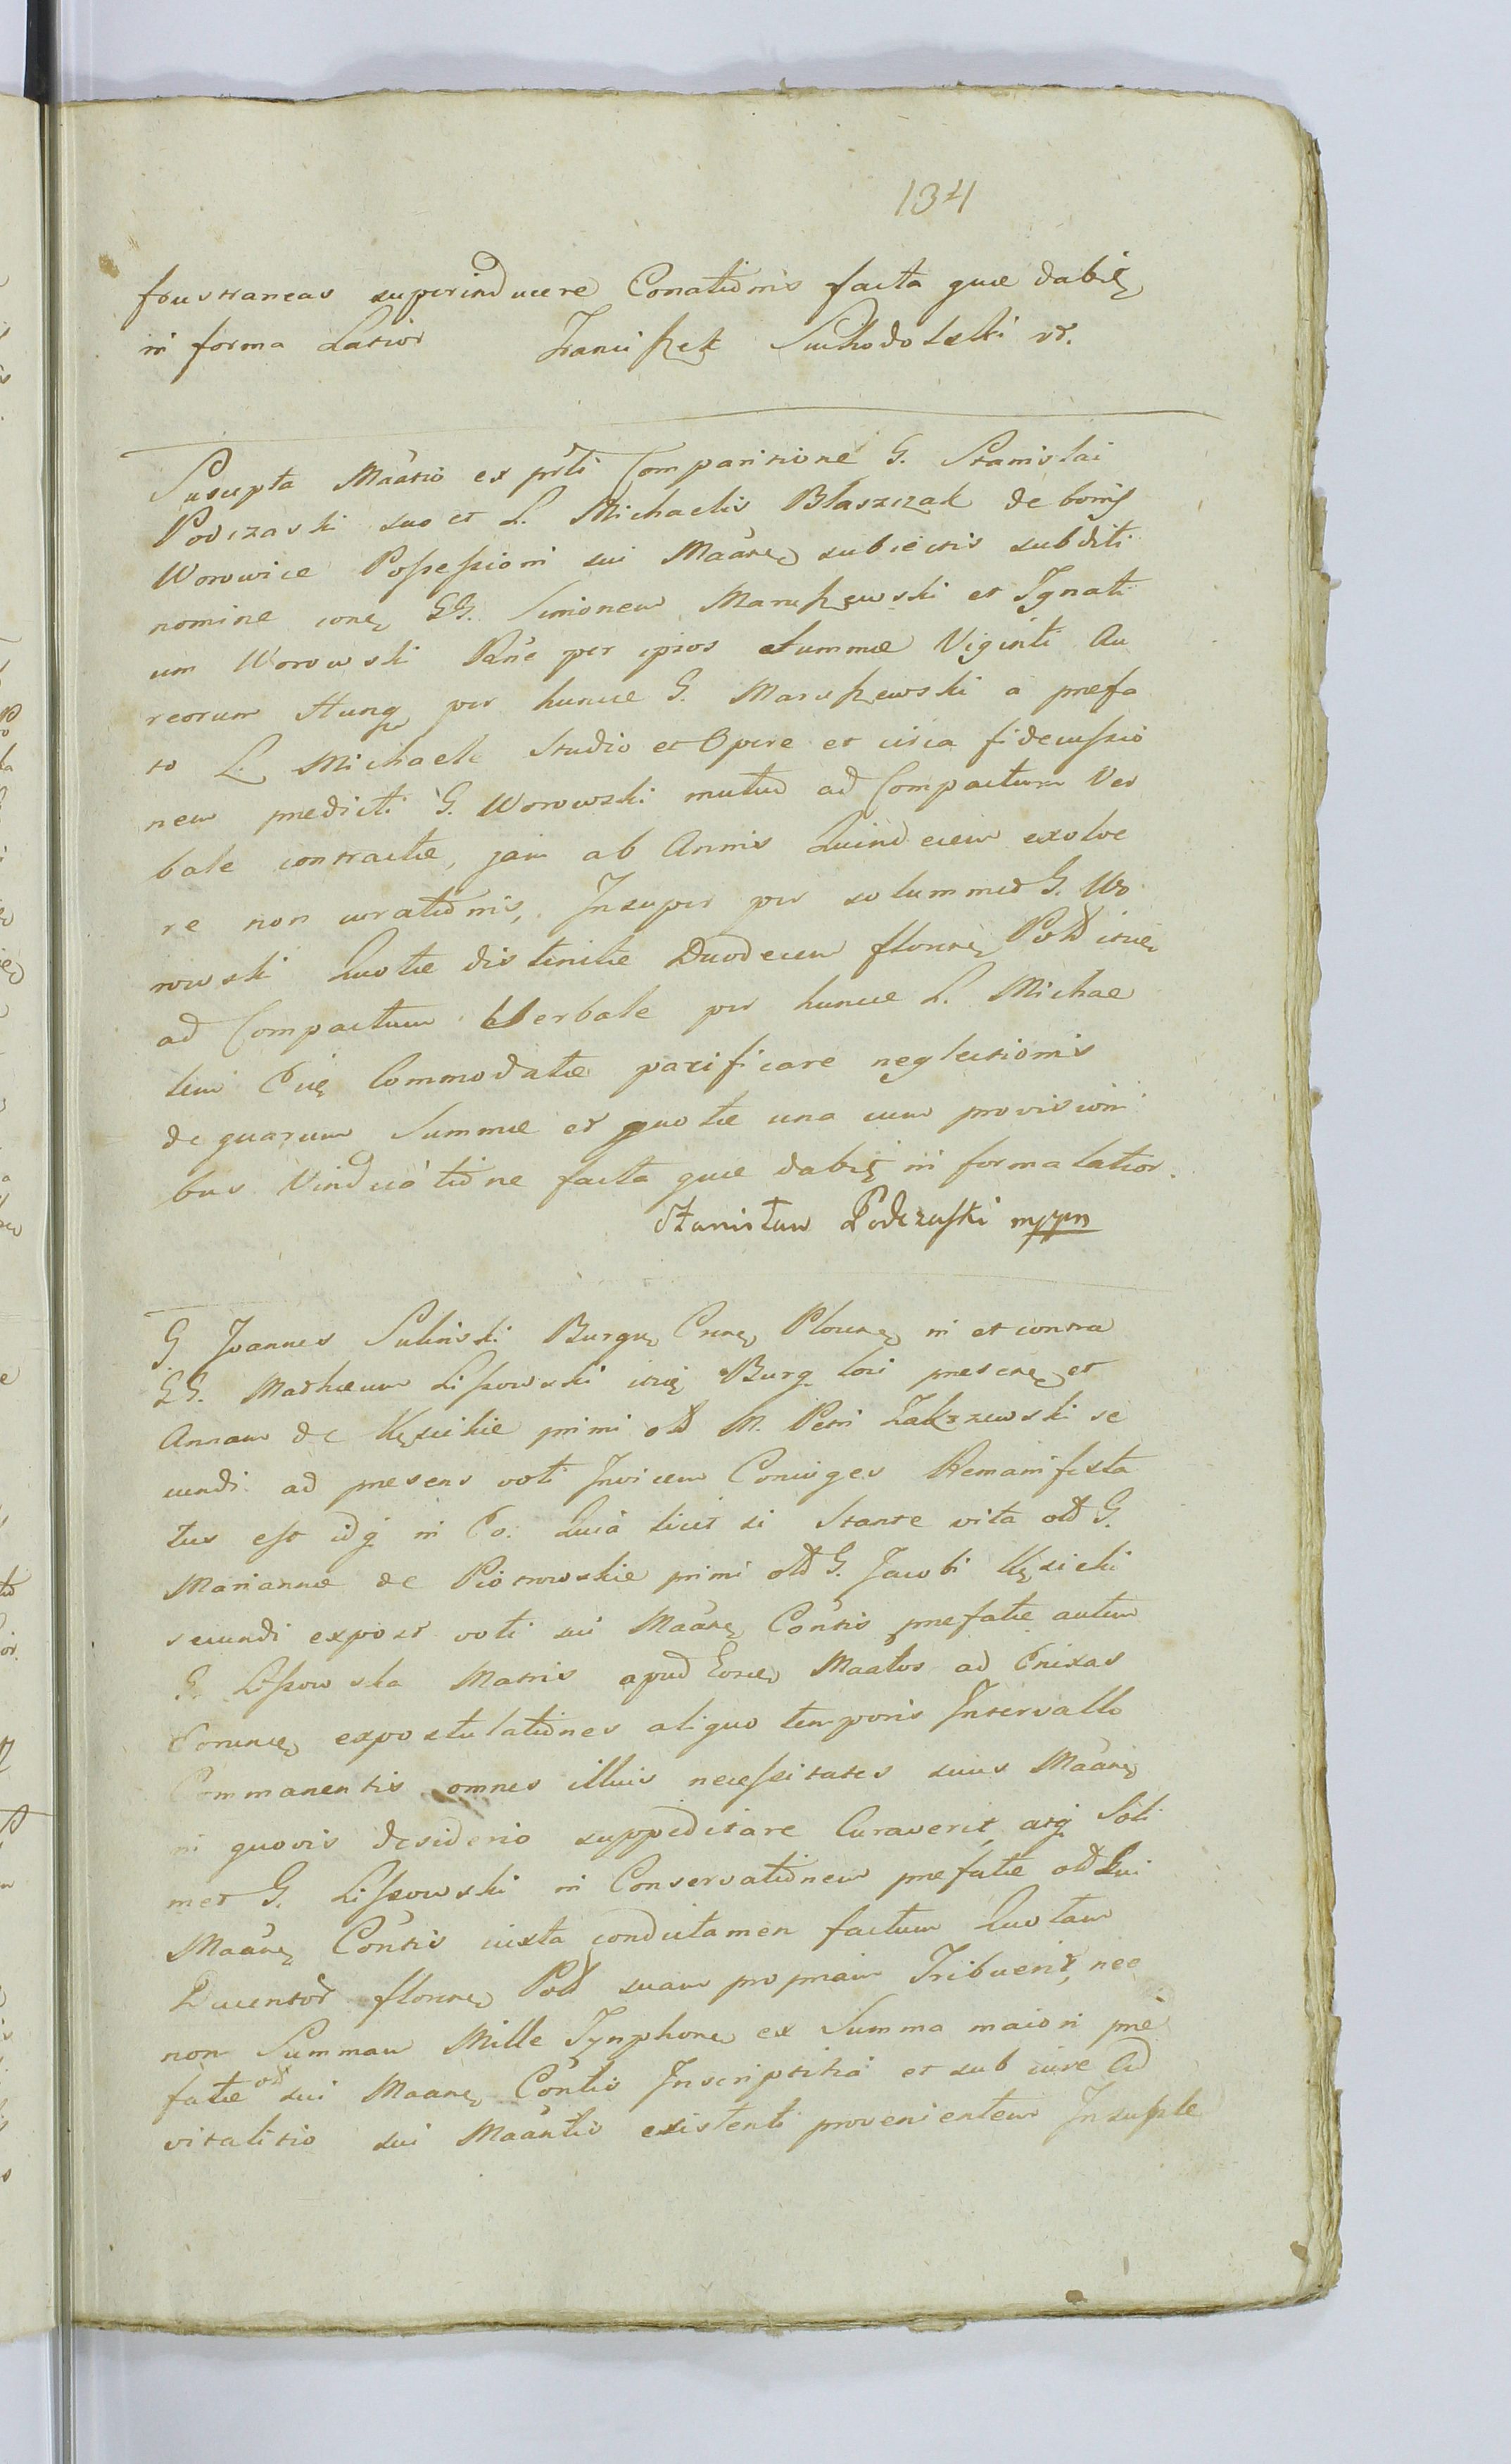 134
frustraneas superinducere Conationis facta quæ dabit
in forma Latior Franciszek Suchodolski vr.
Suscepta Mãatio ex prti Comparitione G. Stanislai
Podczaski suo et L. Michaelis Błaszczak de bonis
Worowice Possessioni sui Mãatis subiectis subditi
nomine cone GG. Simonem Maruszewski et Ignati
um Worowski Põne per ipsos Summæ Viginti Au
reorum Hung per hunce G. Maruszewski a præfa
to L. Michaele Studio et Opere et circa fidecussio
nem prædicti G. Worowski mutuo ad Compactum Ver
bale contractæ, jam ab Annis Quindecim exolve
re non curationis, Insuper per solummet G. Wo
rowski Quotæ distinctæ Duodecem florene Poll
ad Compactum Verbale per hunce L. Michae
lem Commodatæ pacificare neglectionis
de quarum Summæ et quotæ una cum provisioni
bus Vindicatione facta quæ dabit in forma latior.
Stanisław Podczaski mppn
G Joannes Suliński Burgen Plocen in et contra
GG. Mathæum Liszowski Burg loci præsene et
Annam de Kęsickie primi olt M. Petri Zakrzewski se
cundi ad præsens voti Invicem Coniuges Remanifesta
tus est idq in Eo: Quia licet is Stante vita olt G.
Mariannæ de Piotrowskie primi olt G. Jacobi Kęsicki
secundi expost voti sui Mãatis Cõntis præfatæ autem
G. Liszowska Matris apud Mãatus ad Enixas
expostulationes aliquo temporis Intervallo
Commanentis omnes illius necessitates suius Mãatis
in quovis desiderio suppeditare Curaverit, atq
met G. Liszowski in Conservationem præfatæ olt Sui
Mãatis Cõntis iuxta condictamen factum Quotam
Ducentor florene Poll suam propriam Tribuerit, nec
non Summam Mille Tynphone ex Summa maiori præ
fatæ olt sui Mãatis Cõntis Inscriptitia et sub iure Ad
vitalitio sui Mãantis existenti provenientem Insuple